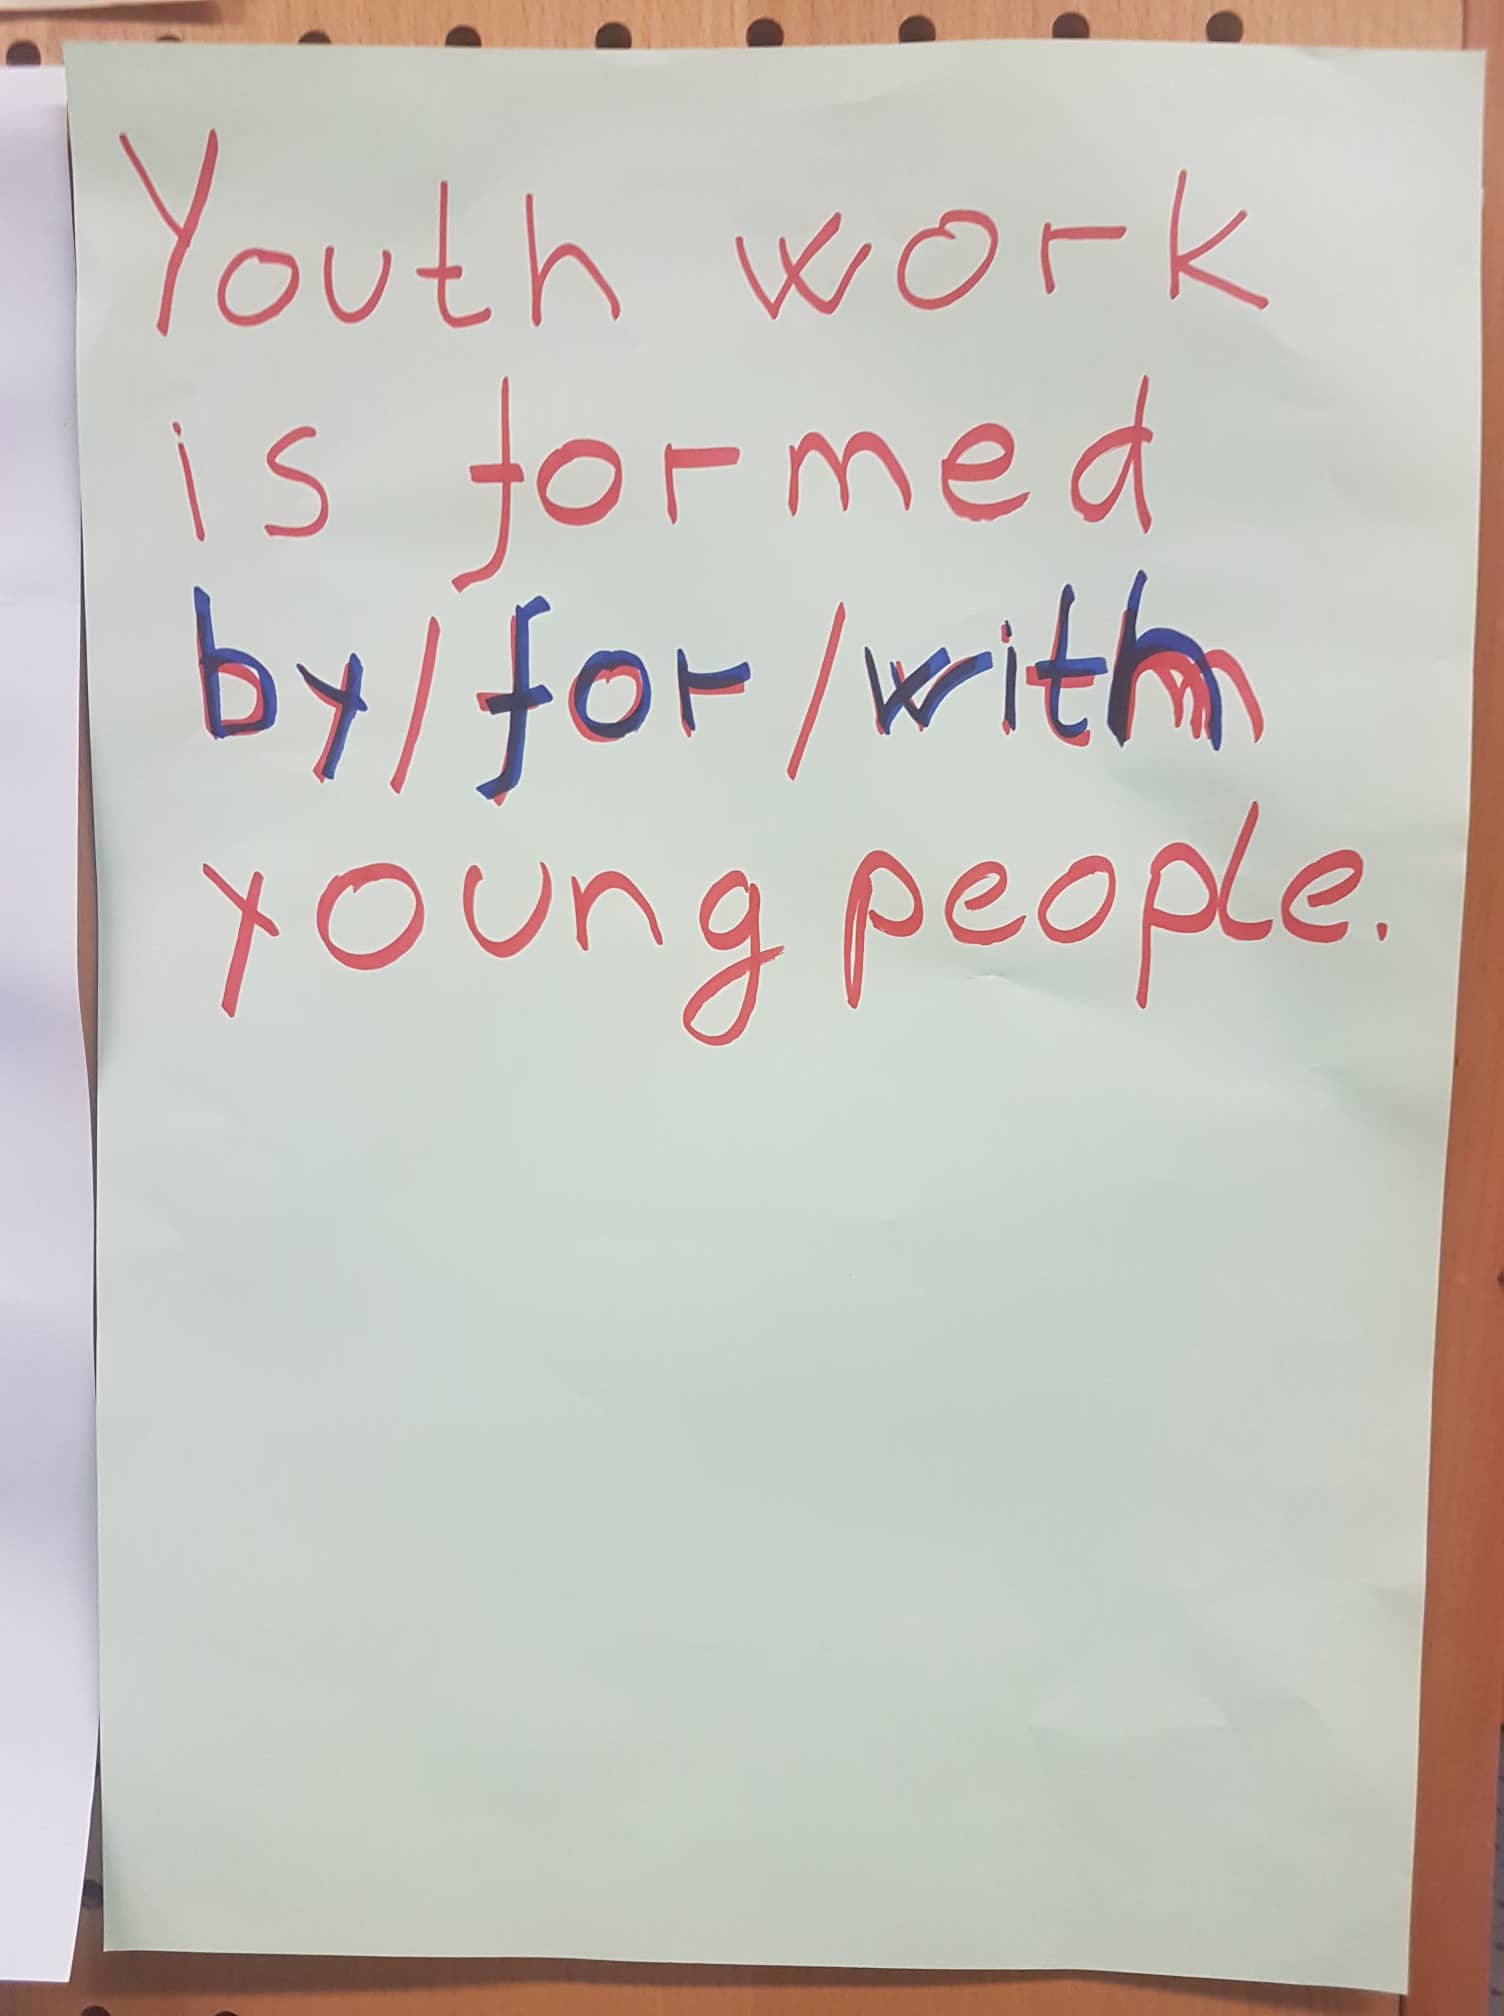 Youth work
is formed
by/for/with
young people.